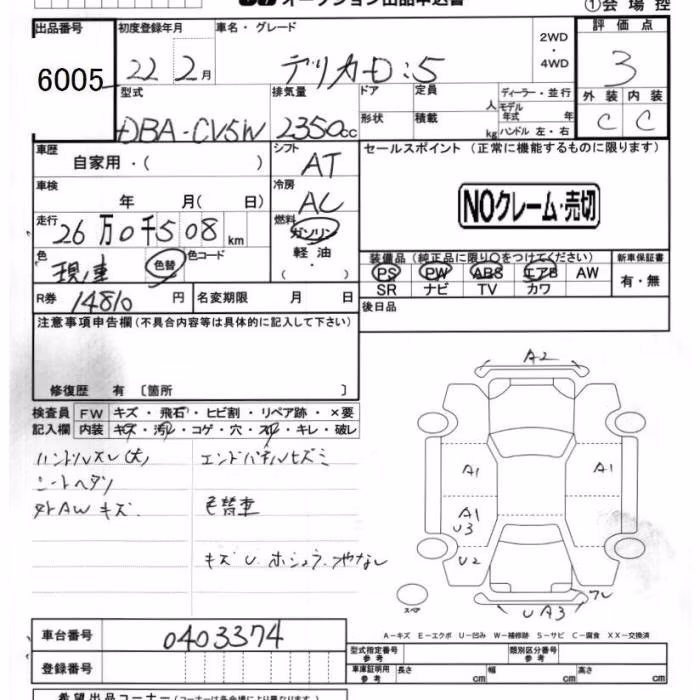 オークション出品申込書
①会場控
出品番号
6005
初度登録年月
22 2月
車名・グレード
デリカD:5
2WD
・
4WD
評価点
3
外装 内装
C C
型式
DBA-CV5W
排気量
2350cc
ドア
形状
定員
人
積載
kg
ディーラー・並行
モデル年式 年
ハンドル 左・右
車歴
自家用・( )
シフト
AT
セールスポイント(正常に機能するものに限ります)
NOクレーム・売切
車検
年 月(日)
冷房
AC
走行
26万0千508km
燃料
ガソリン
軽油
・
色
色替
色コード
装備品(純正品に限り○をつけてください)
PS PW ABS エアB AW
SR ナビ TV カワ
新車保証書
有・無
R券
14810円
名変期限 月 日
後日品
注意事項申告欄(不具合内容等は具体的に記入して下さい)
修復歴 有〔箇所 〕
検査員記入欄
FW キズ・飛石・ヒビ割・リペア跡・×要
内装 キズ・汚レ・コゲ・穴・スレ・キレ・破レ
ハンドルスレ(大) エンドパネルヒズミ
シートヘタリ
外AWキズ 色替車
キズU
A2
A1 A1
A1
U3
U2
UA3
スペア
A-キズ E-エクボ U-凹み W-補修跡 S-サビ C-腐食 XX-交換済
車台番号
0403374
型式指定番号
参考
類別区分番号
参考
登録番号
車庫証明用
参考
長さ cm
幅 cm
高さ cm
希望出品コーナー(コーナーは各会場により異なります)